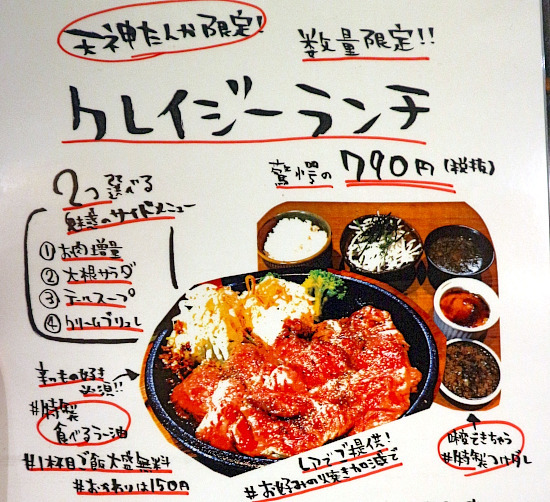 天神たんか限定!
数量限定!!
クレイジーランチ
驚愕の 790円(税抜)
2つ選べる
魅惑のサイドメニュー
①お肉増量
②大根サラダ
③テールスープ
④クリームブリュレ
辛いもの好き
必須!!
#特製
食べるラー油
#1杯目ご飯大盛無料
#おかわりは150円
レアでご提供!
#お好みの焼き加減で
#特製つけダレ